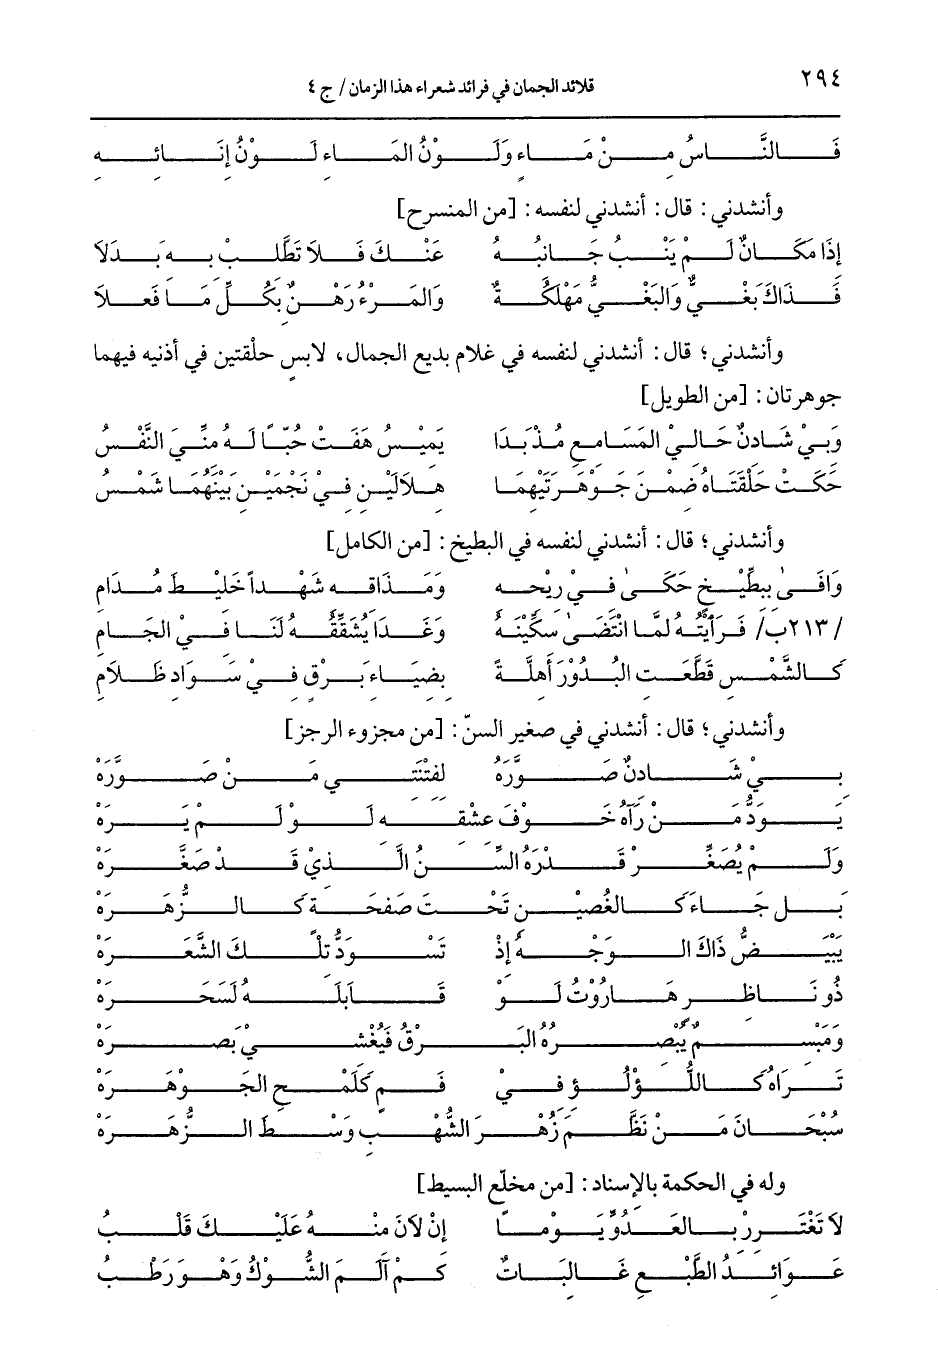 ٢٩٤
قلائد الجمان في فرائد شعراء هذا الزمان / ج ٤
فَالنَّاسُ مِنْ مَاءٍ وَلَوْنُ المَاءِ لَوْنُ إِنَائِهِ
وأنشدني: قال: أنشدني لنفسه: [من المنسرح]
إِذَا مَكَانٌ لَمْ يَنْبُ جَانِبُهُ عَنْكَ فَلاَ تَطَّلِبْ بِهِ بَدَلاَ
فَذَاكَ بَغْيٌ وَالبَغْيُ مَهْلَكَةٌ وَالمَرْءُ رَهْنٌ بِكُلِّ مَا فَعَلاَ
وأنشدني؛ قال: أنشدني لنفسه في غلام بديع الجمال، لابسٍ حلْقتين في أذنيه فيهما
جوهرتان: [من الطويل]
وَبِيْ شَادِنٌ حَالِيْ المَسَامِعِ مُذْ بَدَا يَمِيْسُ هَفَتْ حُبّاً لَهُ مِنِّيَ النَّفْسُ
حَكَتْ حَلْقَتَاهُ ضِمْنَ جَوْهَرَتَيْهِمَا هِلاَلَيْنِ فِيْ نَجْمَيْنِ بَيْنَهُمَا شَمْسُ
وأنشدني؛ قال: أنشدني لنفسه في البطيخ: [من الكامل]
وَافَىٰ بِبِطِّيْخٍ حَكَىٰ فِيْ رِيْحِهِ وَمَذَاقِهِ شَهْداً خَلِيْطَ مُدَامِ
/٢١٣ب/ فَرَأَيْتُهُ لَمَّا انْتَضَىٰ سِكِّيْنَهُ وَغَدَا يُشَقِّقُهُ لَنَا فِيْ الجَامِ
كَالشَّمْسِ قَطَّعَتِ البُدُوْرَ أَهِلَّةً بِضِيَاءِ بَرْقٍ فِيْ سَوَادِ ظَلاَمِ
وأنشدني؛ قال: أنشدني في صغير السنّ: [من مجزوء الرجز]
بِيْ شَادِنٌ صَوَّرَهُ لِفِتْنَتِي مَنْ صَوَّرَهْ
يَوَدُّ مَنْ رَآهُ خَوْفَ عِشْقِهِ لَوْ لَمْ يَرَهْ
وَلَمْ يُصَغِّرْ قَدْرَهُ السِّنُ الَّذِيْ قَدْ صَغَّرَهْ
بَلْ جَاءَ كَالغُصَيْنِ تَحْتَ صَفْحَةٍ كَالزُّهَرَهْ
يَبْيَضُّ ذَاكَ الوَجْهُ إِذْ تَسْوَدُّ تِلْكَ الشَّعَرَهْ
ذُو نَاظِرٍ هَارُوْتُ لَوْ قَابَلَهُ لَسَحَرَهْ
وَمَبْسِمٍ يُبْصِرُهُ البَرْقُ فَيُغْشِي بَصَرَهْ
تَرَاهُ كَاللُّؤْلُؤِ فِيْ فَمٍ كَلَمْحِ الجَوْهَرَهْ
سُبْحَانَ مَنْ نَظَّمَ زُهْرَ الشُّهْبِ وَسْطَ الزُّهَرَهْ
وله في الحكمة بالإسناد: [من مخلّع البسيط]
لاَ تَغْتَرِرْ بِالعَدُوِّ يَوْماً إِنْ لاَنَ مِنْهُ عَلَيْكَ قَلْبُ
عَوَائِدُ الطَّبْعِ غَالِبَاتٌ كَمْ آلَمَ الشَّوْكُ وَهْوَ رَطْبُ